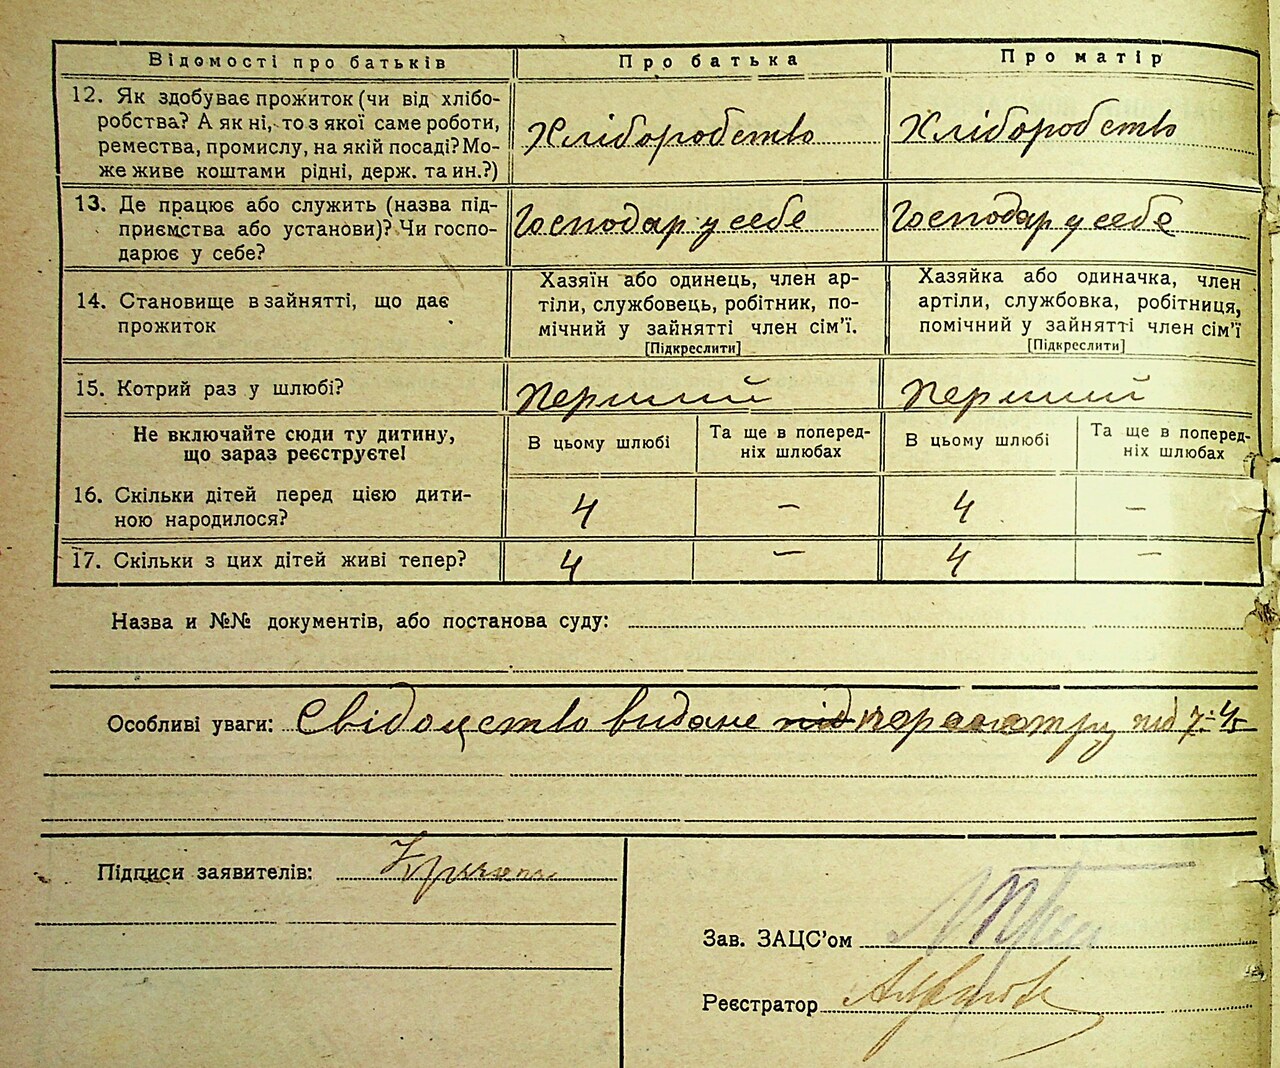 Відомості про батьків
Про батька
Про матір
12. Як здобуває прожиток (чи від хлібо-
робства? А як ні, то з якої саме роботи,
ремества, промислу, на якій посаді? Мо-
же живе коштами рідні, держ. та ин.?)
Хліборобство
Хліборобство
13. Де працює або служить (назва під-
приємства або установи)? Чи госпо-
дарює у себе?
Господар у себе
Господар у себе
14. Становище в зайнятті, що дає
прожиток
Хазяїн або одинець, член ар-
тіли, службовець, робітник, по-
мічний у зайнятті член сім’ї.
[Підкреслити]
Хазяйка або одиначка, член
артіли, службовка, робітниця,
помічний у зайнятті член сім’ї
[Підкреслити]
15. Котрий раз у шлюбі?
Перший
Перший
Не включайте сюди ту дитину,
що зараз реєструєте!
В цьому шлюбі
Та ще в поперед-
ніх шлюбах
В цьому шлюбі
Та ще в поперед-
ніх шлюбах
16. Скільки дітей перед цією дити-
ною народилося?
4
–
4
–
17. Скільки з цих дітей живі тепер?
4
–
4
–
Назва и №№ документів, або постанова суду:
Особливі уваги: Свідоцство видане під
Підписи заявителів:
Зав. ЗАЦС’ом
Реєстратор